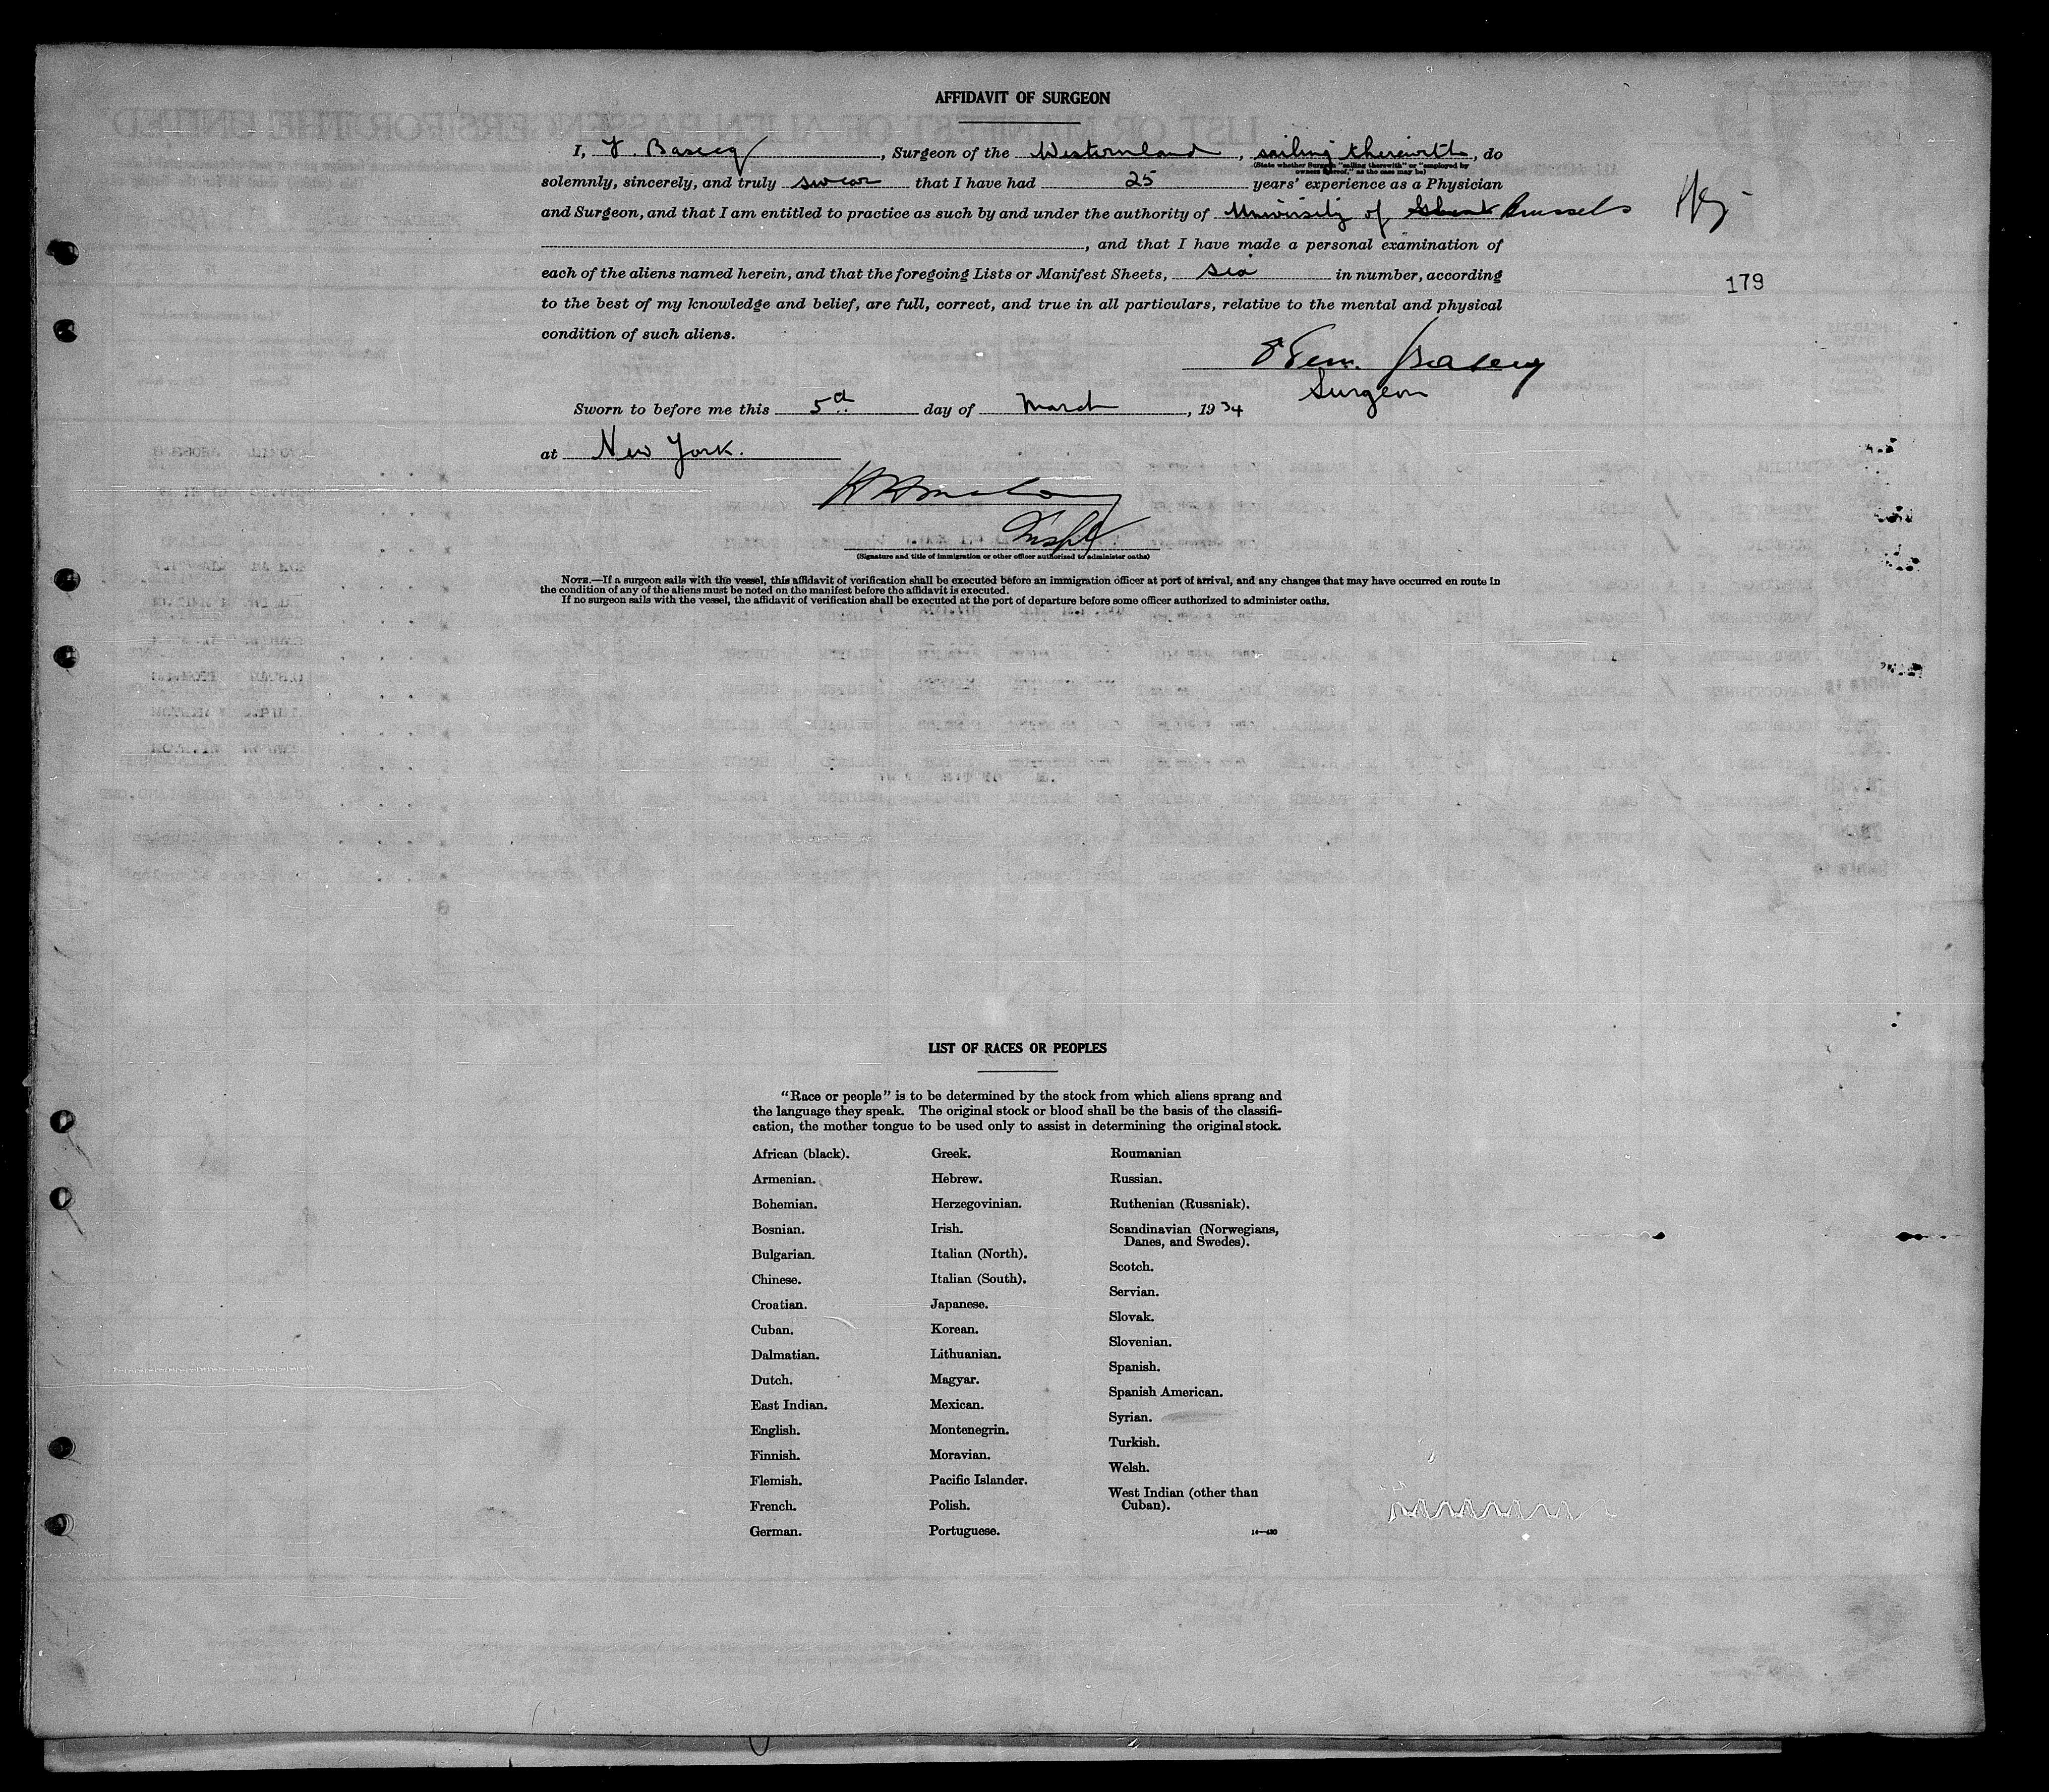 AFFIDAVIT OF SURGEON
I, F. Basecq, Surgeon of the Westernland, sailing therewith, do
(State whether Surgeon "sailing therewith" or "employed by
owners thereof," as the case may be)
solemnly, sincerely, and truly swear that I have had 25 years' experience as a Physician
and Surgeon, and that I am entitled to practice as such by and under the authority of University of Ghent Brussels
179
, and that I have made a personal examination of
each of the aliens named herein, and that the foregoing Lists or Manifest Sheets, six in number, according
to the best of my knowledge and belief, are full, correct, and true in all particulars, relative to the mental and physical
condition of such aliens.
Surgeon
Sworn to before me this 5th day of March, 1934
at New York.
Inspt
(Signature and title of immigration or other officer authorized to administer oaths)
NOTE.—If a surgeon sails with the vessel, this affidavit of verification shall be executed before an immigration officer at port of arrival, and any changes that may have occurred en route in
the condition of any of the aliens must be noted on the manifest before the affidavit is executed.
If no surgeon sails with the vessel, the affidavit of verification shall be executed at the port of departure before some officer authorized to administer oaths.
LIST OF RACES OR PEOPLES
"Race or people" is to be determined by the stock from which aliens sprang and
the language they speak. The original stock or blood shall be the basis of the classifi-
cation, the mother tongue to be used only to assist in determining the original stock.
African (black).
Armenian.
Bohemian.
Bosnian.
Bulgarian.
Chinese.
Croatian.
Cuban.
Dalmatian.
Dutch.
East Indian.
English.
Finnish.
Flemish.
French.
German.
Greek.
Hebrew.
Herzegovinian.
Irish.
Italian (North).
Italian (South).
Japanese.
Korean.
Lithuanian.
Magyar.
Mexican.
Montenegrin.
Moravian.
Pacific Islander.
Polish.
Portuguese.
Roumanian
Russian.
Ruthenian (Russniak).
Scandinavian (Norwegians,
Danes, and Swedes).
Scotch.
Servian.
Slovak.
Slovenian.
Spanish.
Spanish American.
Syrian.
Turkish.
Welsh.
West Indian (other than
Cuban).
14—430